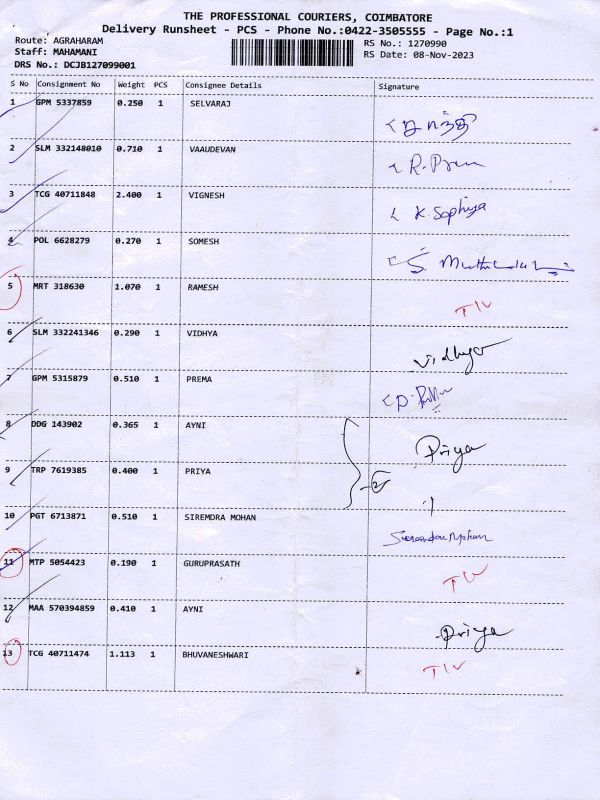 THE PROFESSIONAL COURIERS, COIMBATORE
Delivery Runsheet - PCS - Phone No.:0422-3505555 - Page No.:1
Route: AGRAHARAM RS No.: 1270990
Staff: MAHAMANI RS Date: 08-Nov-2023
DRS No.: DCJB127099001
S No Consignment No Weight PCS Consignee Details Signature
1 GPM 5337859 0.250 1 SELVARAJ
2 SLM 332148010 0.710 1 VAAUDEVAN
3 TCG 40711848 2.400 1 VIGNESH K. Sophiya
4 POL 6628279 0.270 1 SOMESH
5 MRT 318630 1.070 1 RAMESH
6 SLM 332241346 0.290 1 VIDHYA Vidhya
7 GPM 5315879 0.510 1 PREMA
8 DDG 143902 0.365 1 AYNI Priya
9 TRP 7619385 0.400 1 PRIYA
10 PGT 6713871 0.510 1 SIREMDRA MOHAN
11 MTP 5054423 0.190 1 GURUPRASATH
12 MAA 570394859 0.410 1 AYNI Priya
13 TCG 40711474 1.113 1 BHUVANESHWARI